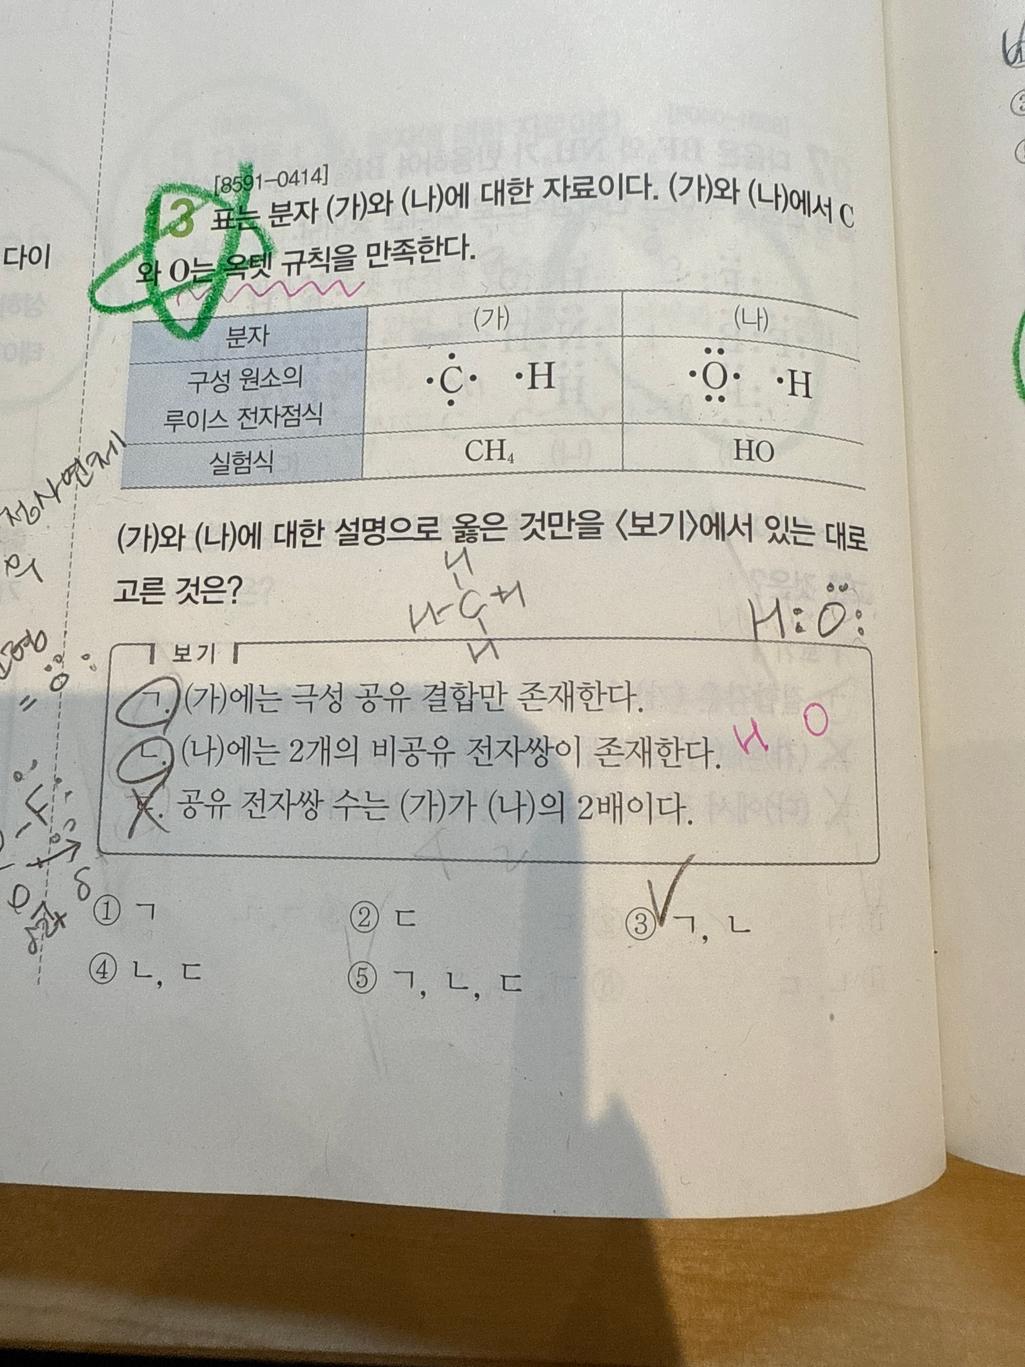 [8591-0414]
13 표는 분자 (가)와 (나)에 대한 자료이다. (가)와 (나)에서 C
와 O는 옥텟 규칙을 만족한다.
다이
분자 (가) (나)
구성 원소의
루이스 전자점식
·C· ·H ·O· ·H
실험식 CH₄ HO
(가)와 (나)에 대한 설명으로 옳은 것만을 〈보기〉에서 있는 대로
고른 것은?
H
H-C-H
H
H:O:
보기
ㄱ. (가)에는 극성 공유 결합만 존재한다.
ㄴ. (나)에는 2개의 비공유 전자쌍이 존재한다.
H O
ㄷ. 공유 전자쌍 수는 (가)가 (나)의 2배이다.
① ㄱ ② ㄷ ③ ㄱ, ㄴ
④ ㄴ, ㄷ ⑤ ㄱ, ㄴ, ㄷ